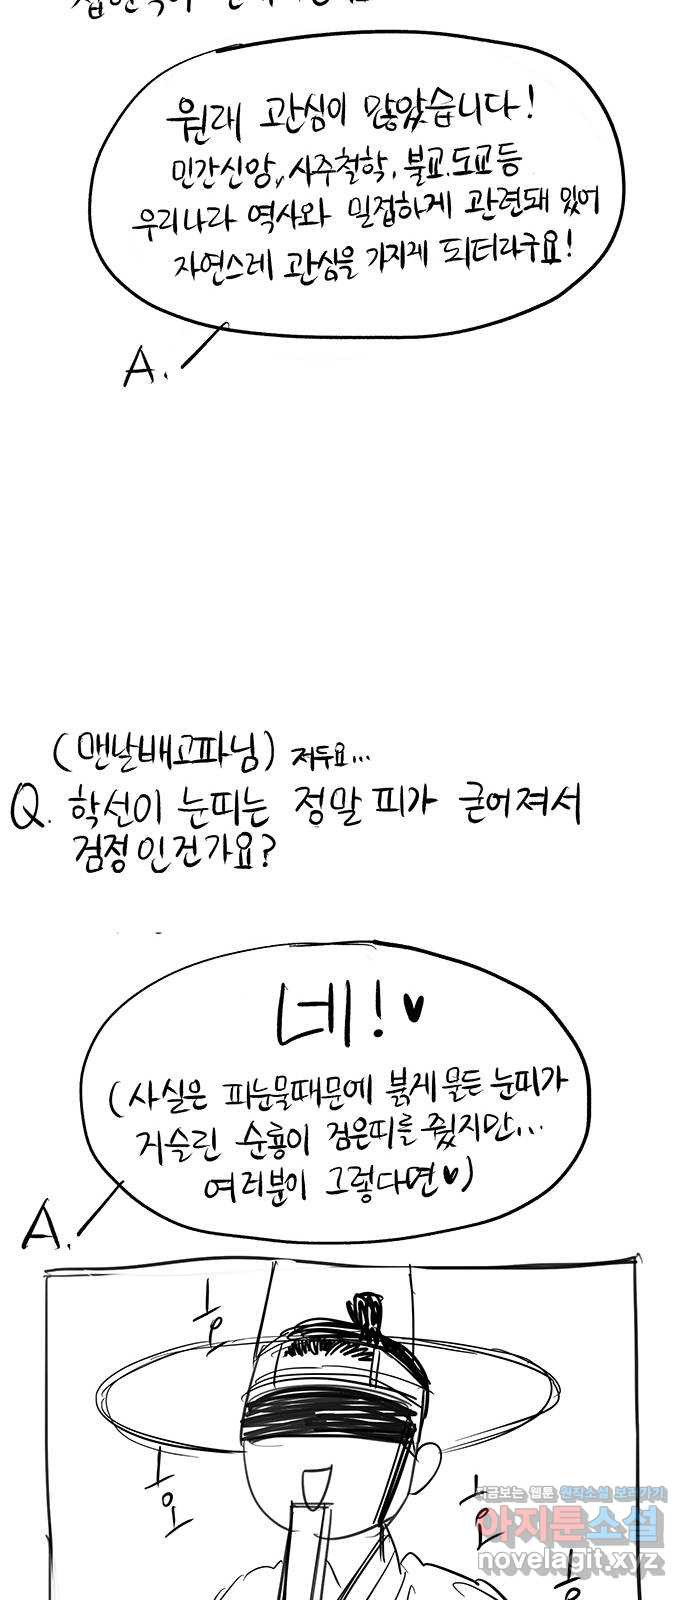 원래 관심이 많았습니다!
민간신앙, 사주철학, 불교. 도교 등
우리나라 역사와 밀접하게 관련돼 있어
자연스레 관심을 가지게 되더라구요!
A.
(맨날배고파님) 저두요...
Q. 학선이 눈띠는 정말 피가 굳어져서
검정인건가요?
네!♥
(사실은 피눈물때문에 붉게 물든 눈띠가
거슬린 순룡이 검은띠를 줬지만...
여러분이 그렇다면♥)
A.
호
호
호
호
지금보는 웹툰 원작소설 보러가기
아지툰소설
novelagit.xyz